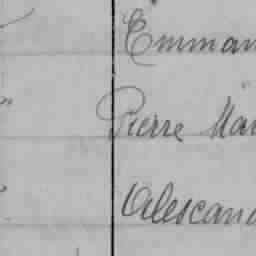 Emman
Pierre Mar
Alescand